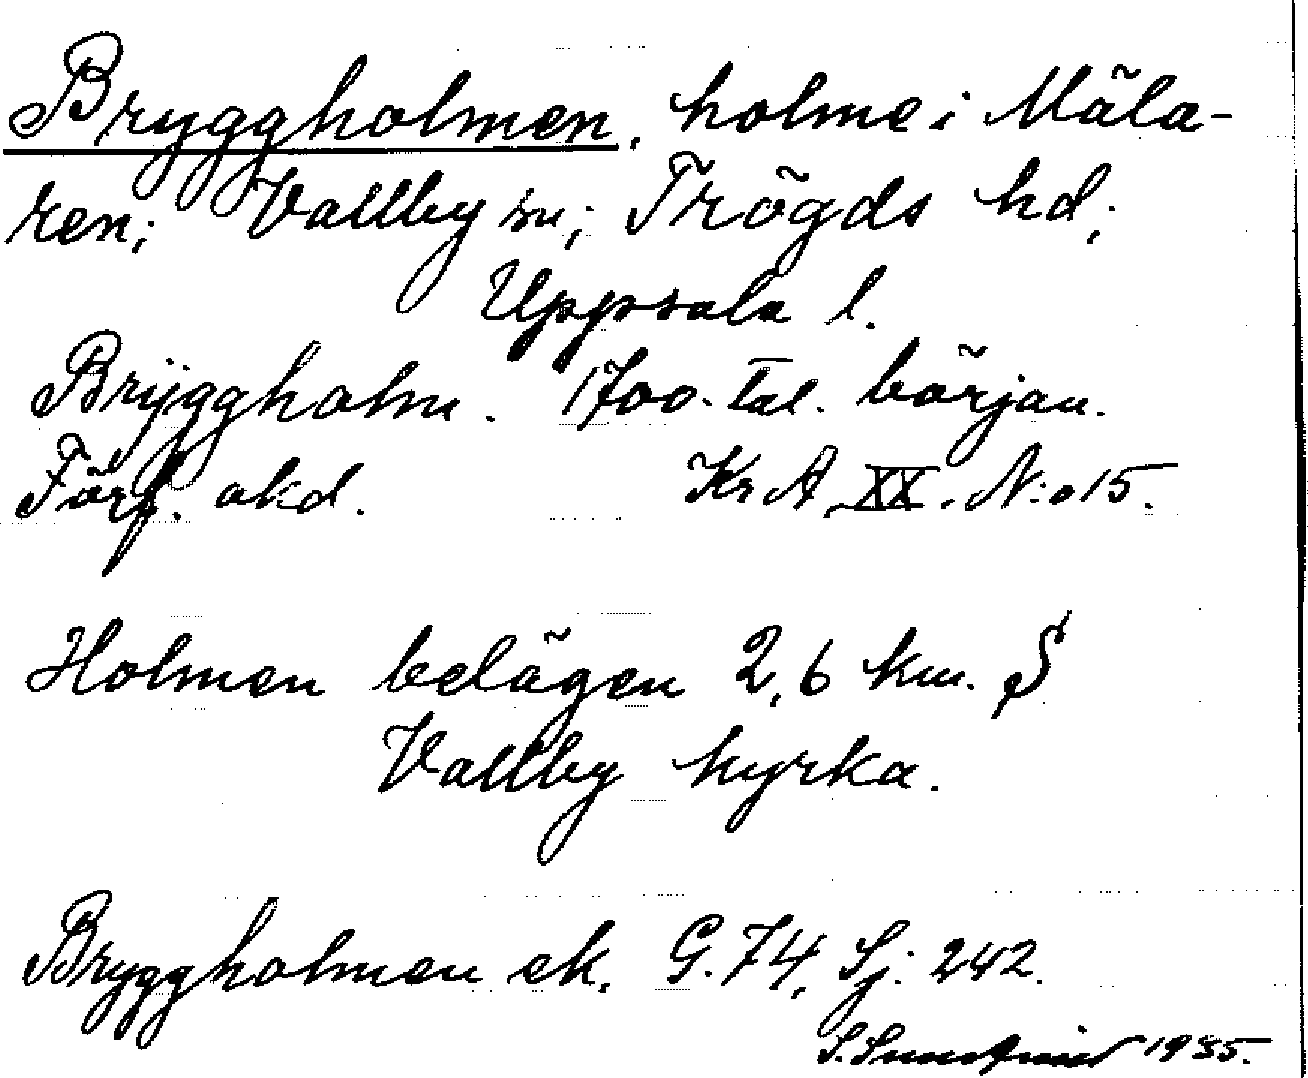 Bryggholmen, holme i Mäla-
ren; Vallby sn; Trögds hd;
Uppsala l.
Brÿggholm. 1700-tal. början.
Förf. okd. Kr A XX. N:o 15.
Holmen belägen 2,6 km. S
Vallby kyrka.
Bryggholmen ek. G. 74, Sj: 242.
S. 1935.